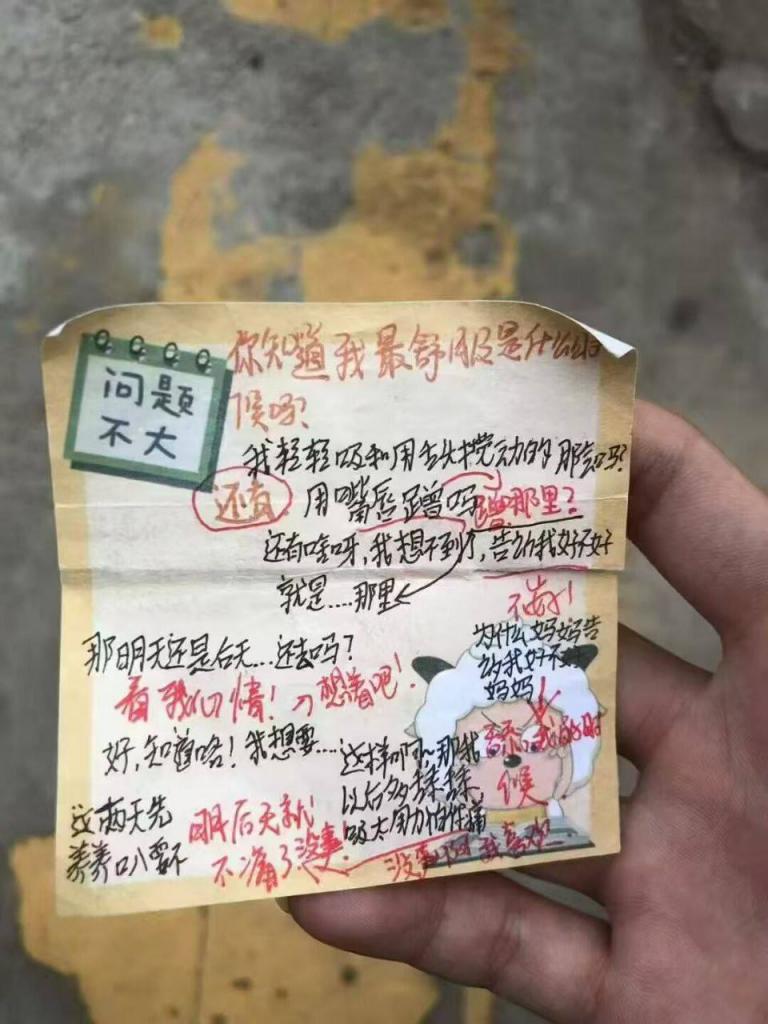 问题
不大
你知道我最舒服是什么时
候吗?
我轻轻吸和用舌头搅动的那会吗?
还有 用嘴唇蹭吗 蹭那里?
还有啥呀,我想不到了,告的我好不好
就是....那里
不告!
为什么妈妈告
的我好不好
妈妈
那明天还是后天...还去吗?
看我心情! 想着吧!
好,知道咯!我想要....
这样啊,那我
以后多舔舔,
吸大力怕你痛
舔我的时
候
这两天先
养养
明后天就
不痛了没事
没事啊 我喜欢